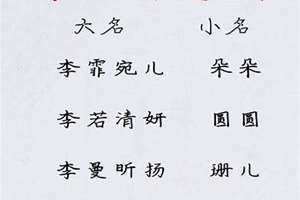 大名 小名
李霏宛儿 朵朵
李若清妍 圆圆
李曼昕扬 珊儿